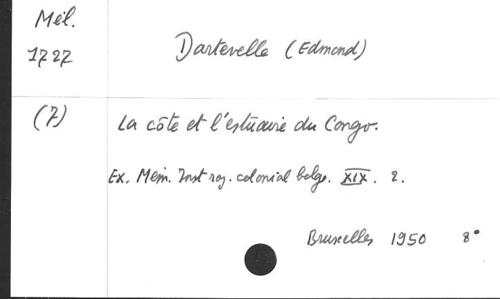 Mél.
1727
Dartevelle (Edmond)
(7)
La côte et l'estuaire du Congo.
Ex. Mém. Inst roy. colonial belge. XIX. 2.
Bruxelles 1950 8°